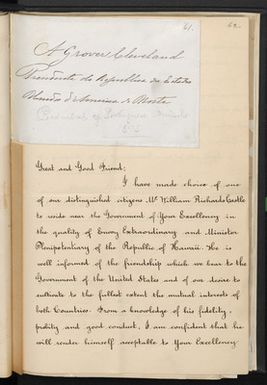 61.
62.
A Grover Cleveland
Presidente da Republica dos Estados
Unidos d'America do Norte
President of
Great and Good Friend;
I have made choice of one
of our distinguished citizens Mr William Richards Castle
to reside near the Government of Your Excellency in
the quality of Envoy Extraordinary and Minister
Plenipotentiary of the Republic of Hawaii. He is
well informed of the friendship which we bear to the
Government of the United States and of our desire to
cultivate to the fullest extent the mutual interests of
both Countries. From a knowledge of his fidelity,
probity and good conduct, I am confident that he
will render himself acceptable to Your Excellency